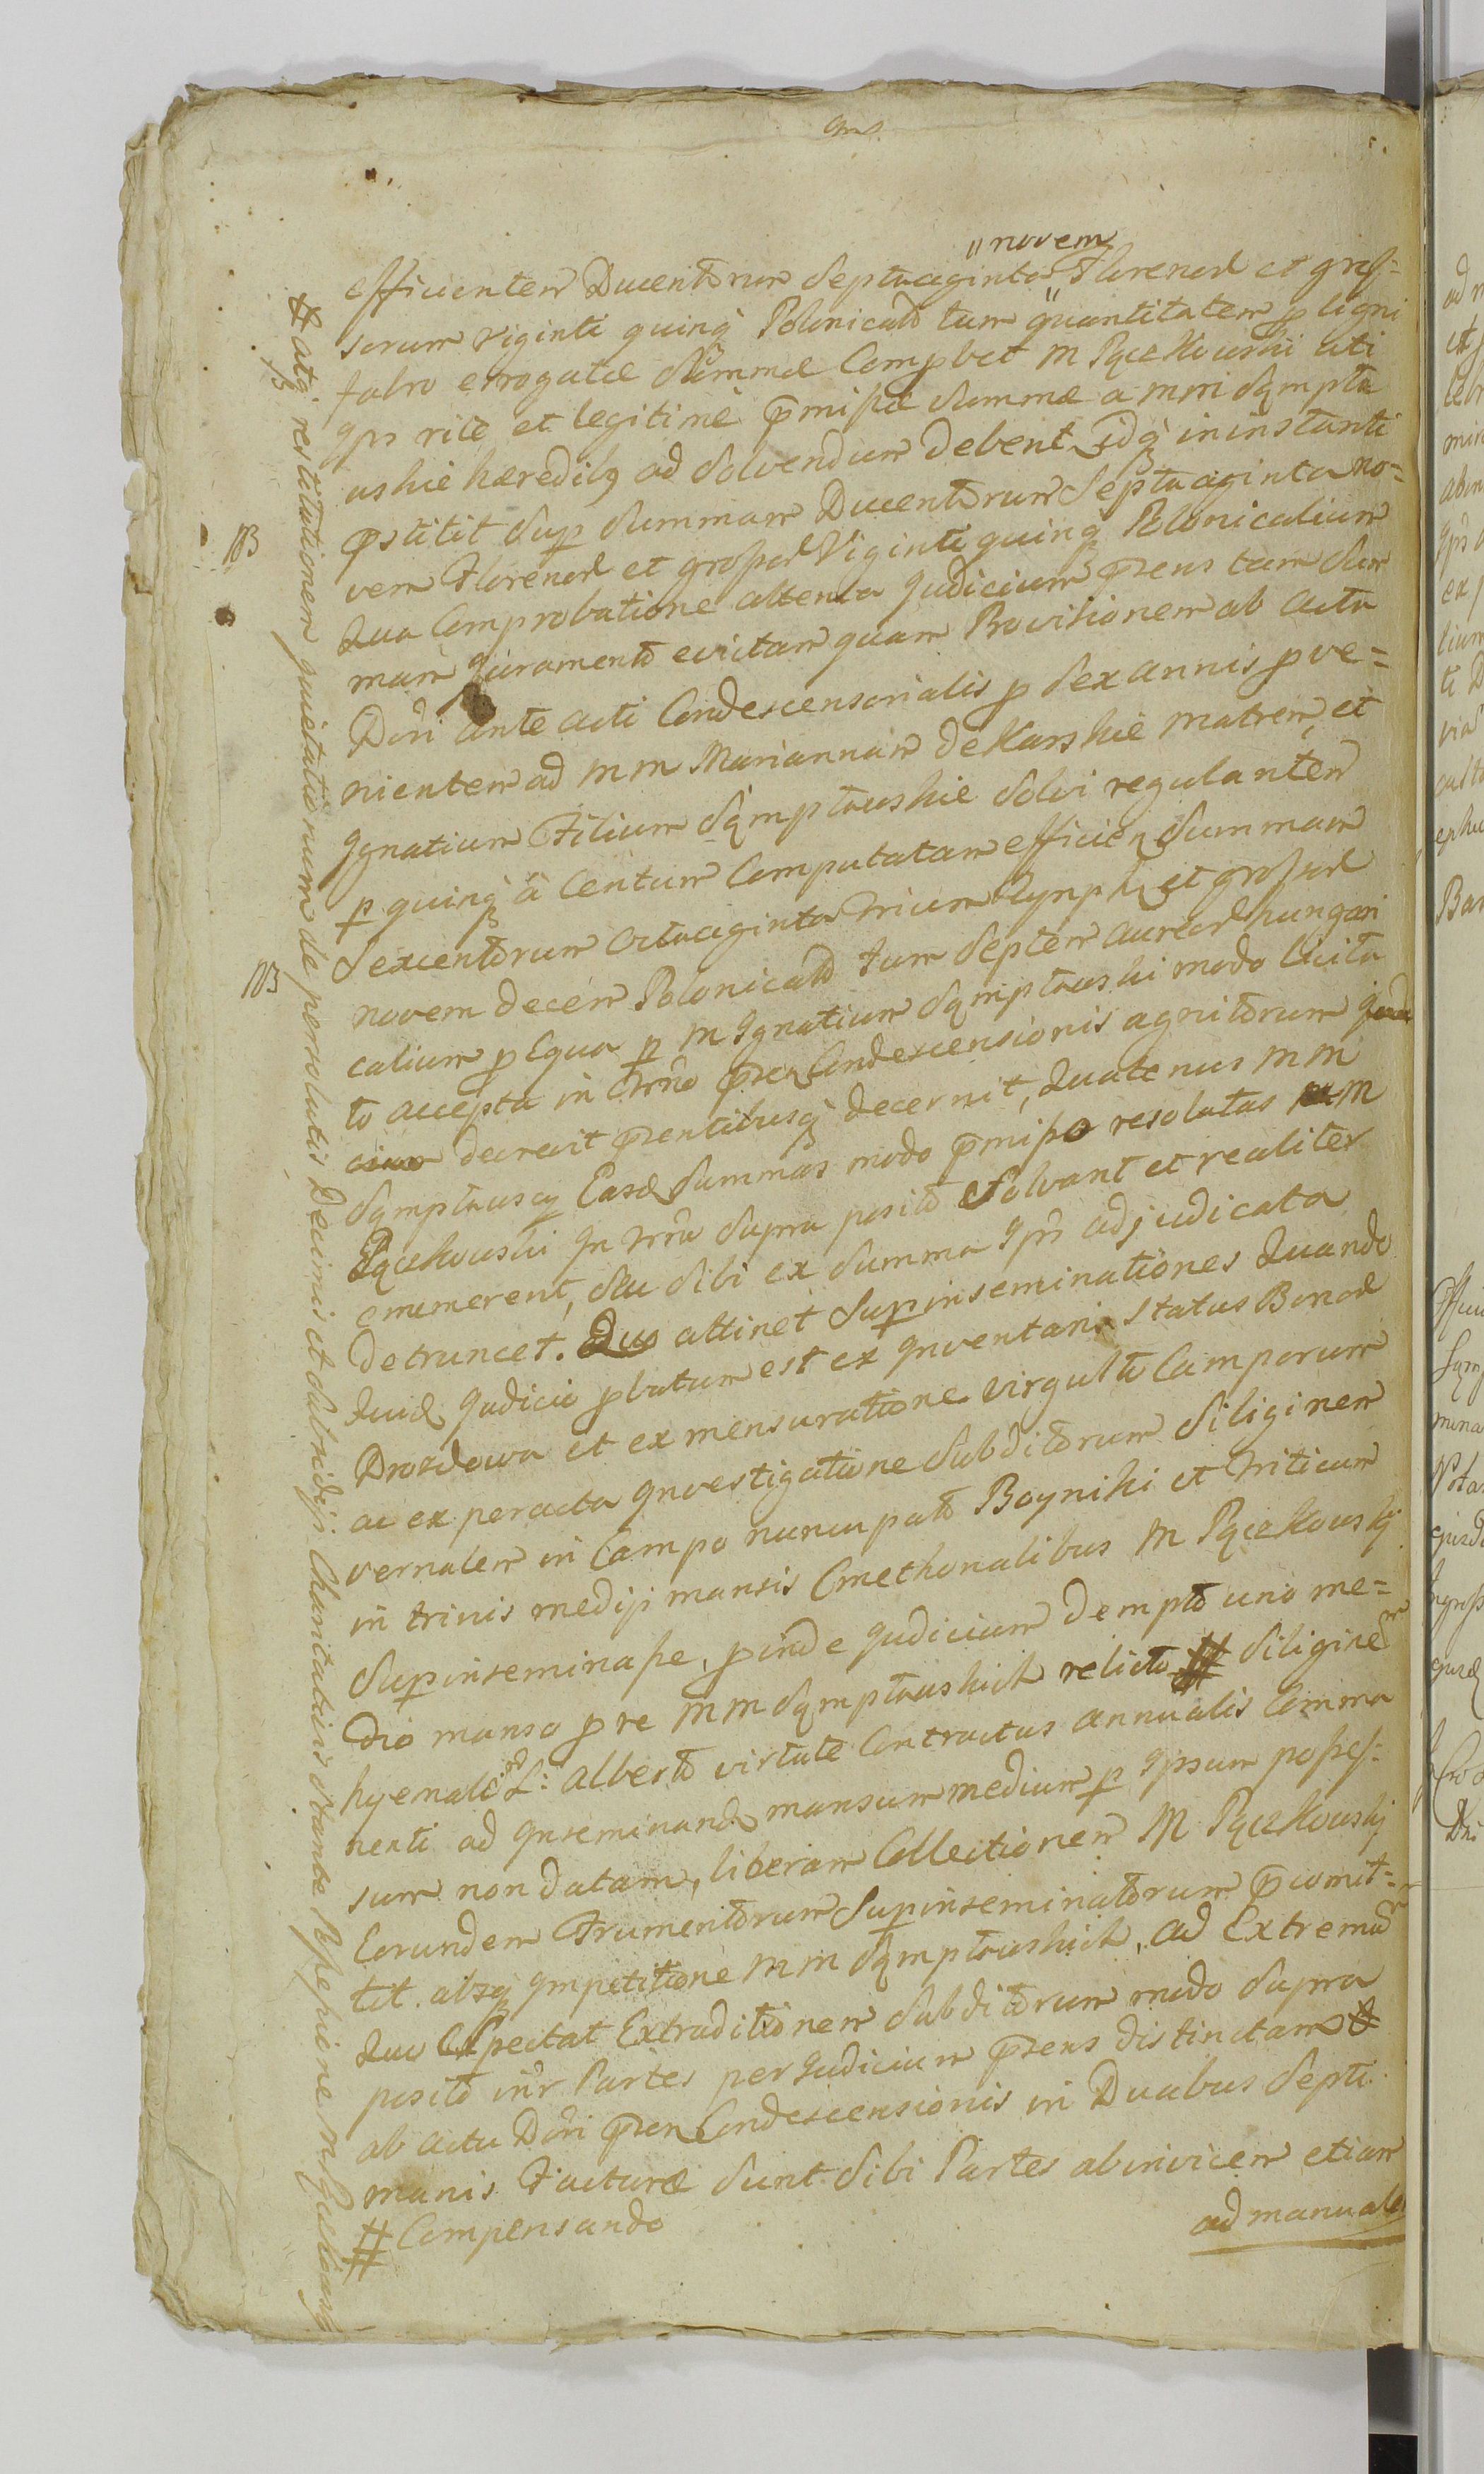 efficientem Ducentorum Septuaginta "novem" Florenor et gros=
sorum viginti quinq Polonicali tum quantitatem p ligni
fabro errogatæ Summæ Comprbet M Pęczkowski uti
Ips rite et legitimè p̄missæ Summæ a mm Sąmpta
wskie hæredibq ad Solvendum Debent idq in instanti
p̄stitit Sup Summam Ducentorum Septuaginta no=
vem Florenor et grossor Viginti quinq Polonicalium
Qua Comprobatione attenta Judicium p̄sens tam Sum
mam Juramento evictam quam Provisionem ab actu
Dōri ante acti Condescensorialis p Sex annis prove=
nientem ad mm Mariannam de Karskie matrem et
Ignatium Filium Sąmptawskie Solvi regulantem
p quinq à Centum Computatam efficien Summam
Sexcentorum Octuaginta Trium Tynph et grossor
novem decem Polonicali Tum Septem aureor hungari
calium p Equa p M Ignatium Sąmptawski modo licita
to accepta in Trno p̄sen Condescensionis agnitorum Judi
cium decrevit p̄sentibusq decernit, Quatenus MM
Sąmptawscy Easd Summas modo p̄misso resolutas M
Pęczkowski In Trno Supra posito Solvant et realiter
enumerent, Seu Sibi ex Summa Ips adjudicata
Detruncet. Quo attinet Supinseminationes Quando
Quid Judicio pbatum est ex Inventario Status Bonor
Drozdowa et ex mensuratione virgulta Camporum
ac ex peracta Investigatione Subditorum Siliginem
vernalem in Campo nuncupato Boyniki et Triticum
in trinis medijs mansis Cmethonalibus M Pęczkowskj
Supinseminasse, pinde Judicium Dempto uno me=
dio manso p re MM Sąmptawskich relicto # Siliginem
hyemale L: Alberto virtute Contractus annualis Comma
nenti ad Inseminand mansum medium p Ipsum posses=
sum non datam, liberam Collectionem M Pęczkowskj
Eorundem Frumentorum Supinseminatorum p̄comit=
tit. absq Impetitione MM Sąmptawskich. Ad Extremum
Quo Spectat Extraditionem Subditorum modo Supra
posito intr Partes per Judicium p̄sens distinctam #
ab actu Dōri p̄sen Condescensionis in Duabus Septi
manis Facturæ Sunt Sibi Partes abinvicem etiam
# Compensando
ad manuale
# atq restitutionem quietationum de persolutis Decimis et Subsidijs Charitativis
NB
NB